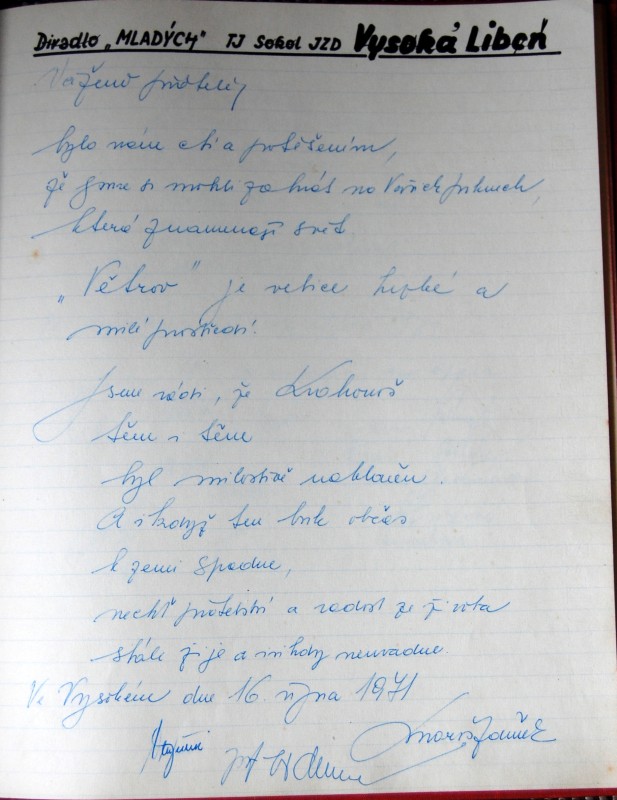 Divadlo „MLADÝCH" TJ Sokol JZD Vysoká Libeň
Vážení přátelé,
bylo nám ctí a potěšením,
že jsme si mohli zahrát na Vašich prknech,
která znamenají svět.
„Větrov" je velice hezké a
milé prostředí.
Jsme rádi, že Krakonoš
těm i těm
byl milostivě nakloněn.
A i když ten krk občas
k zemi spadne,
nechť přátelství a radost ze života
stále žije a nikdy neuvadne.
Ve Vysokém dne 16. října 1971